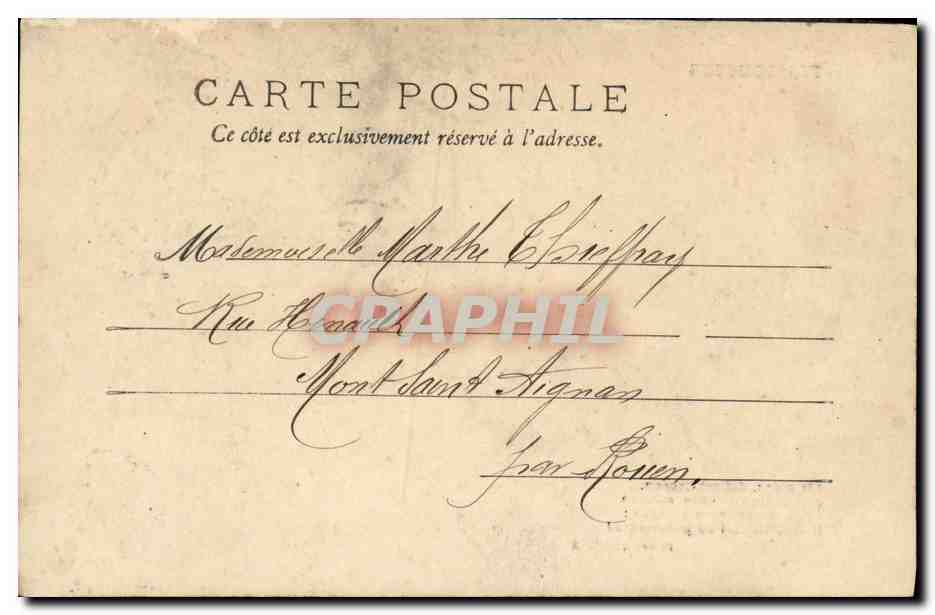 CARTE POSTALE
Ce côté est exclusivement réservé à l'adresse.
Mademoiselle Marthe Thieffray
Rue Hénault
CPAPHIL
Mont Saint Aignan
par Rouen.